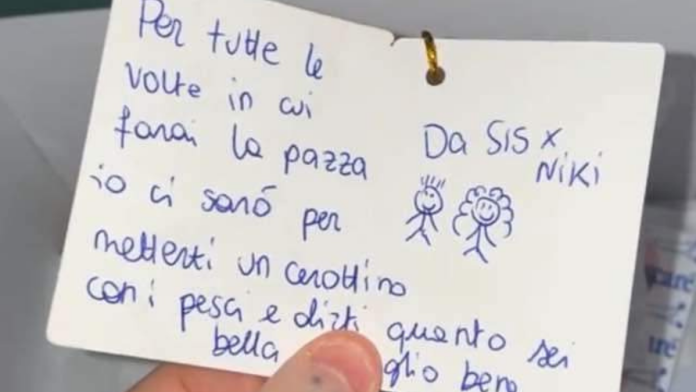 Per tutte le
volte in cui
farai la pazza
io ci sarò per
metterti un cerottino
con i pesci e dirti quanto sei
bella glio bene
Da Sis x
Niki